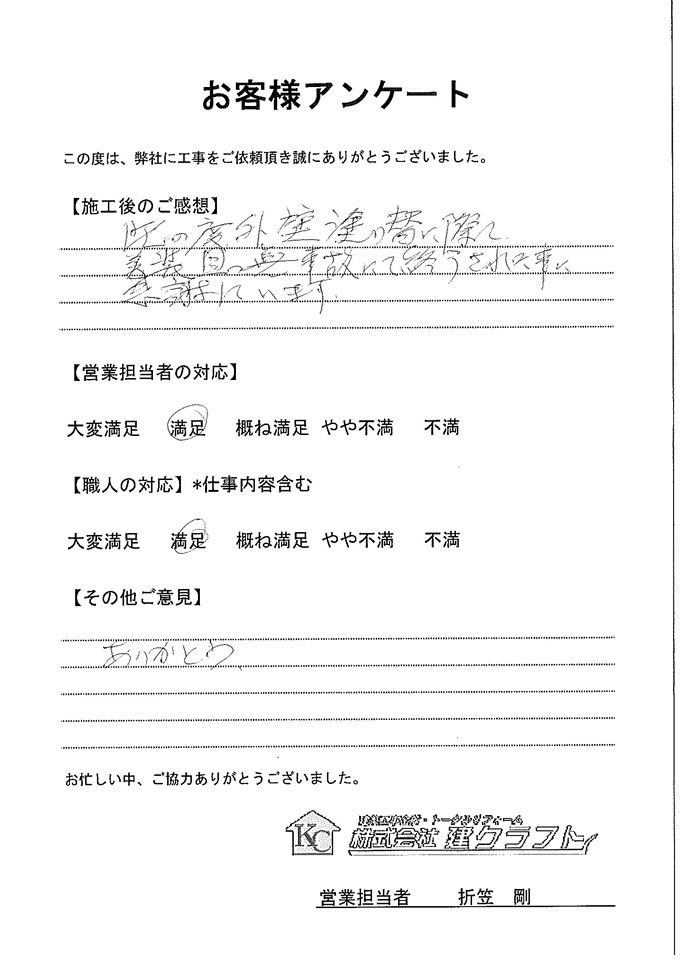 お客様アンケート
この度は、弊社に工事をご依頼頂き誠にありがとうございました。
【施工後のご感想】
の度外壁塗り替に際して
美装且つ無事故にて終うされた事に
感謝しています。
【営業担当者の対応】
大変満足 満足 概ね満足 やや不満 不満
【職人の対応】*仕事内容含む
大変満足 満足 概ね満足 やや不満 不満
【その他ご意見】
ありがとう、
お忙しい中、ご協力ありがとうございました。
KC
・トータルリフォーム
株式会社 建クラフト
営業担当者 折笠 剛